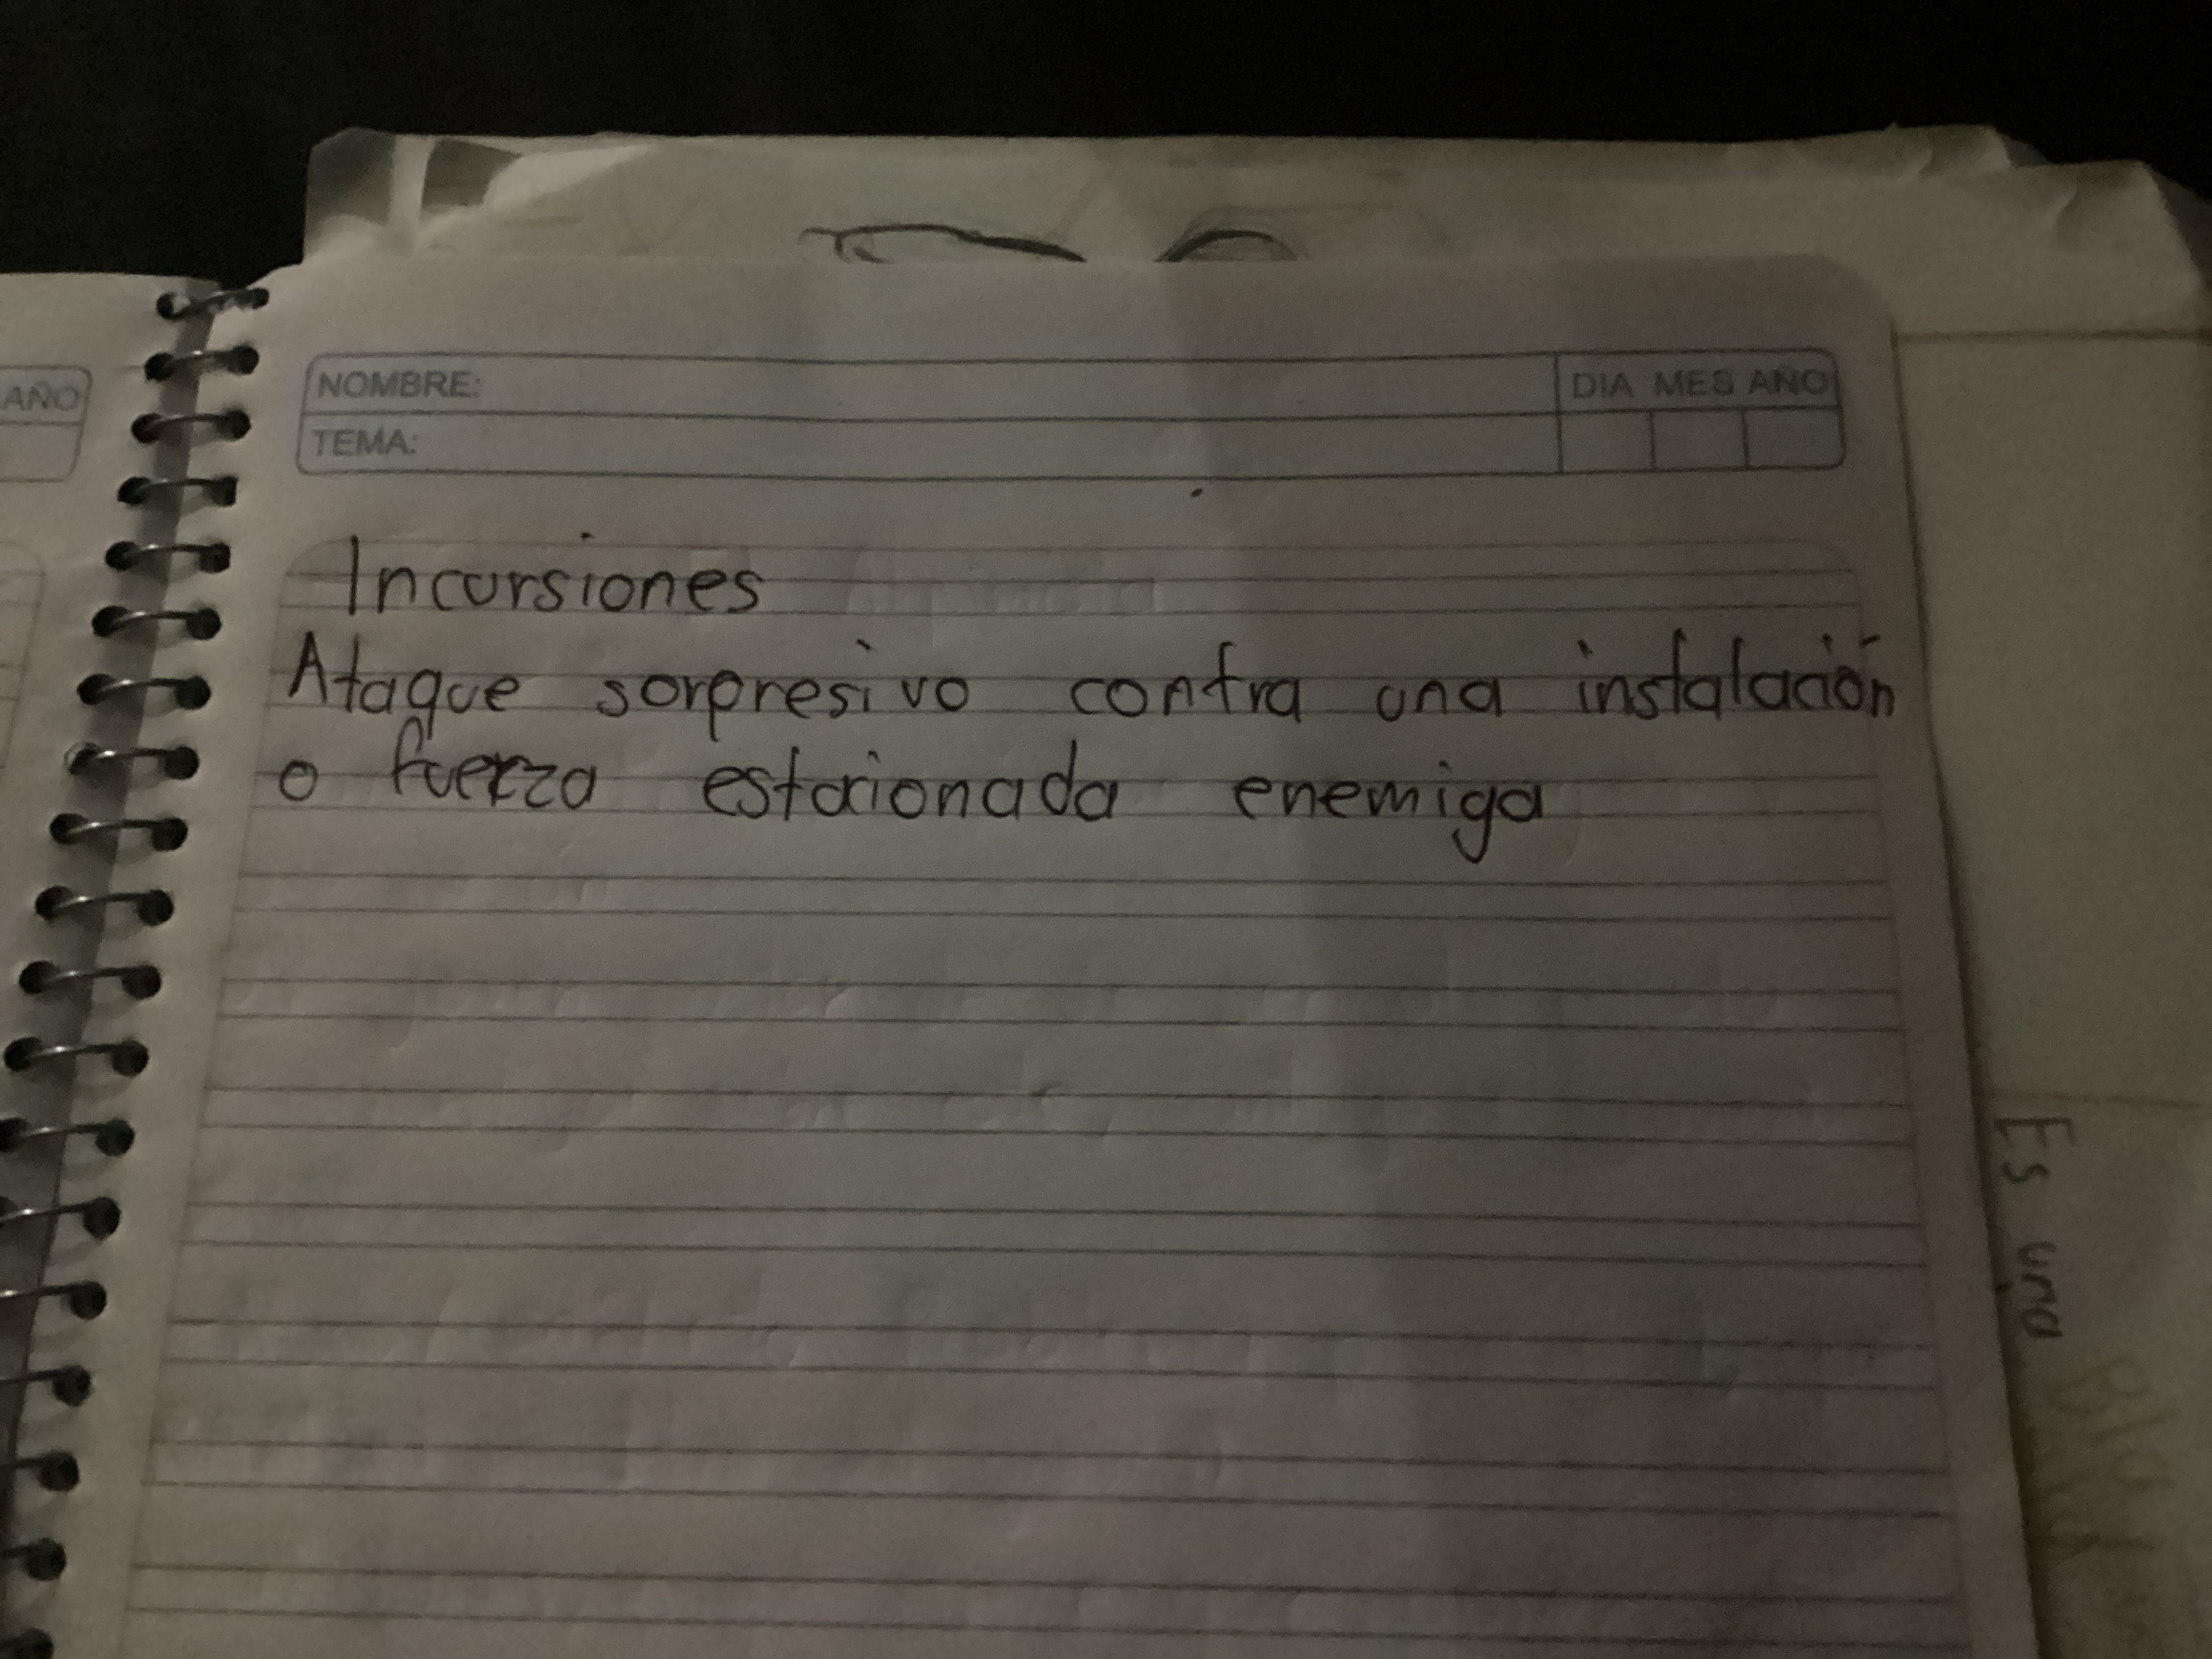 AÑO
NOMBRE:
DIA MES AÑO
TEMA:
Incursiones
Ataque sorpresivo contra una instalación
o fuerza estacionada enemiga
Es una